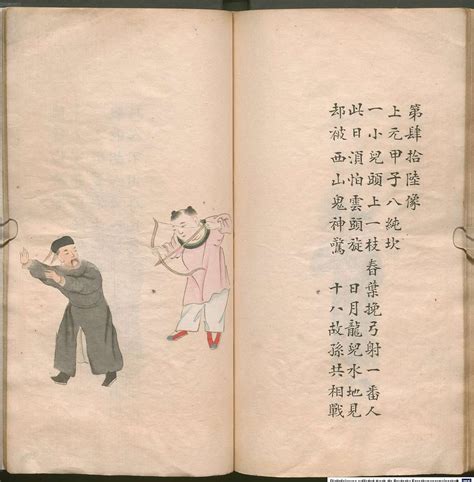 第肆拾陸像
上元甲子八純坎
一小兒頭上一枝春葉挽弓射一番人
此日湏怕雲頭旋 日月龍兒水地見
却被西山鬼神驚 十八故孫共相戰